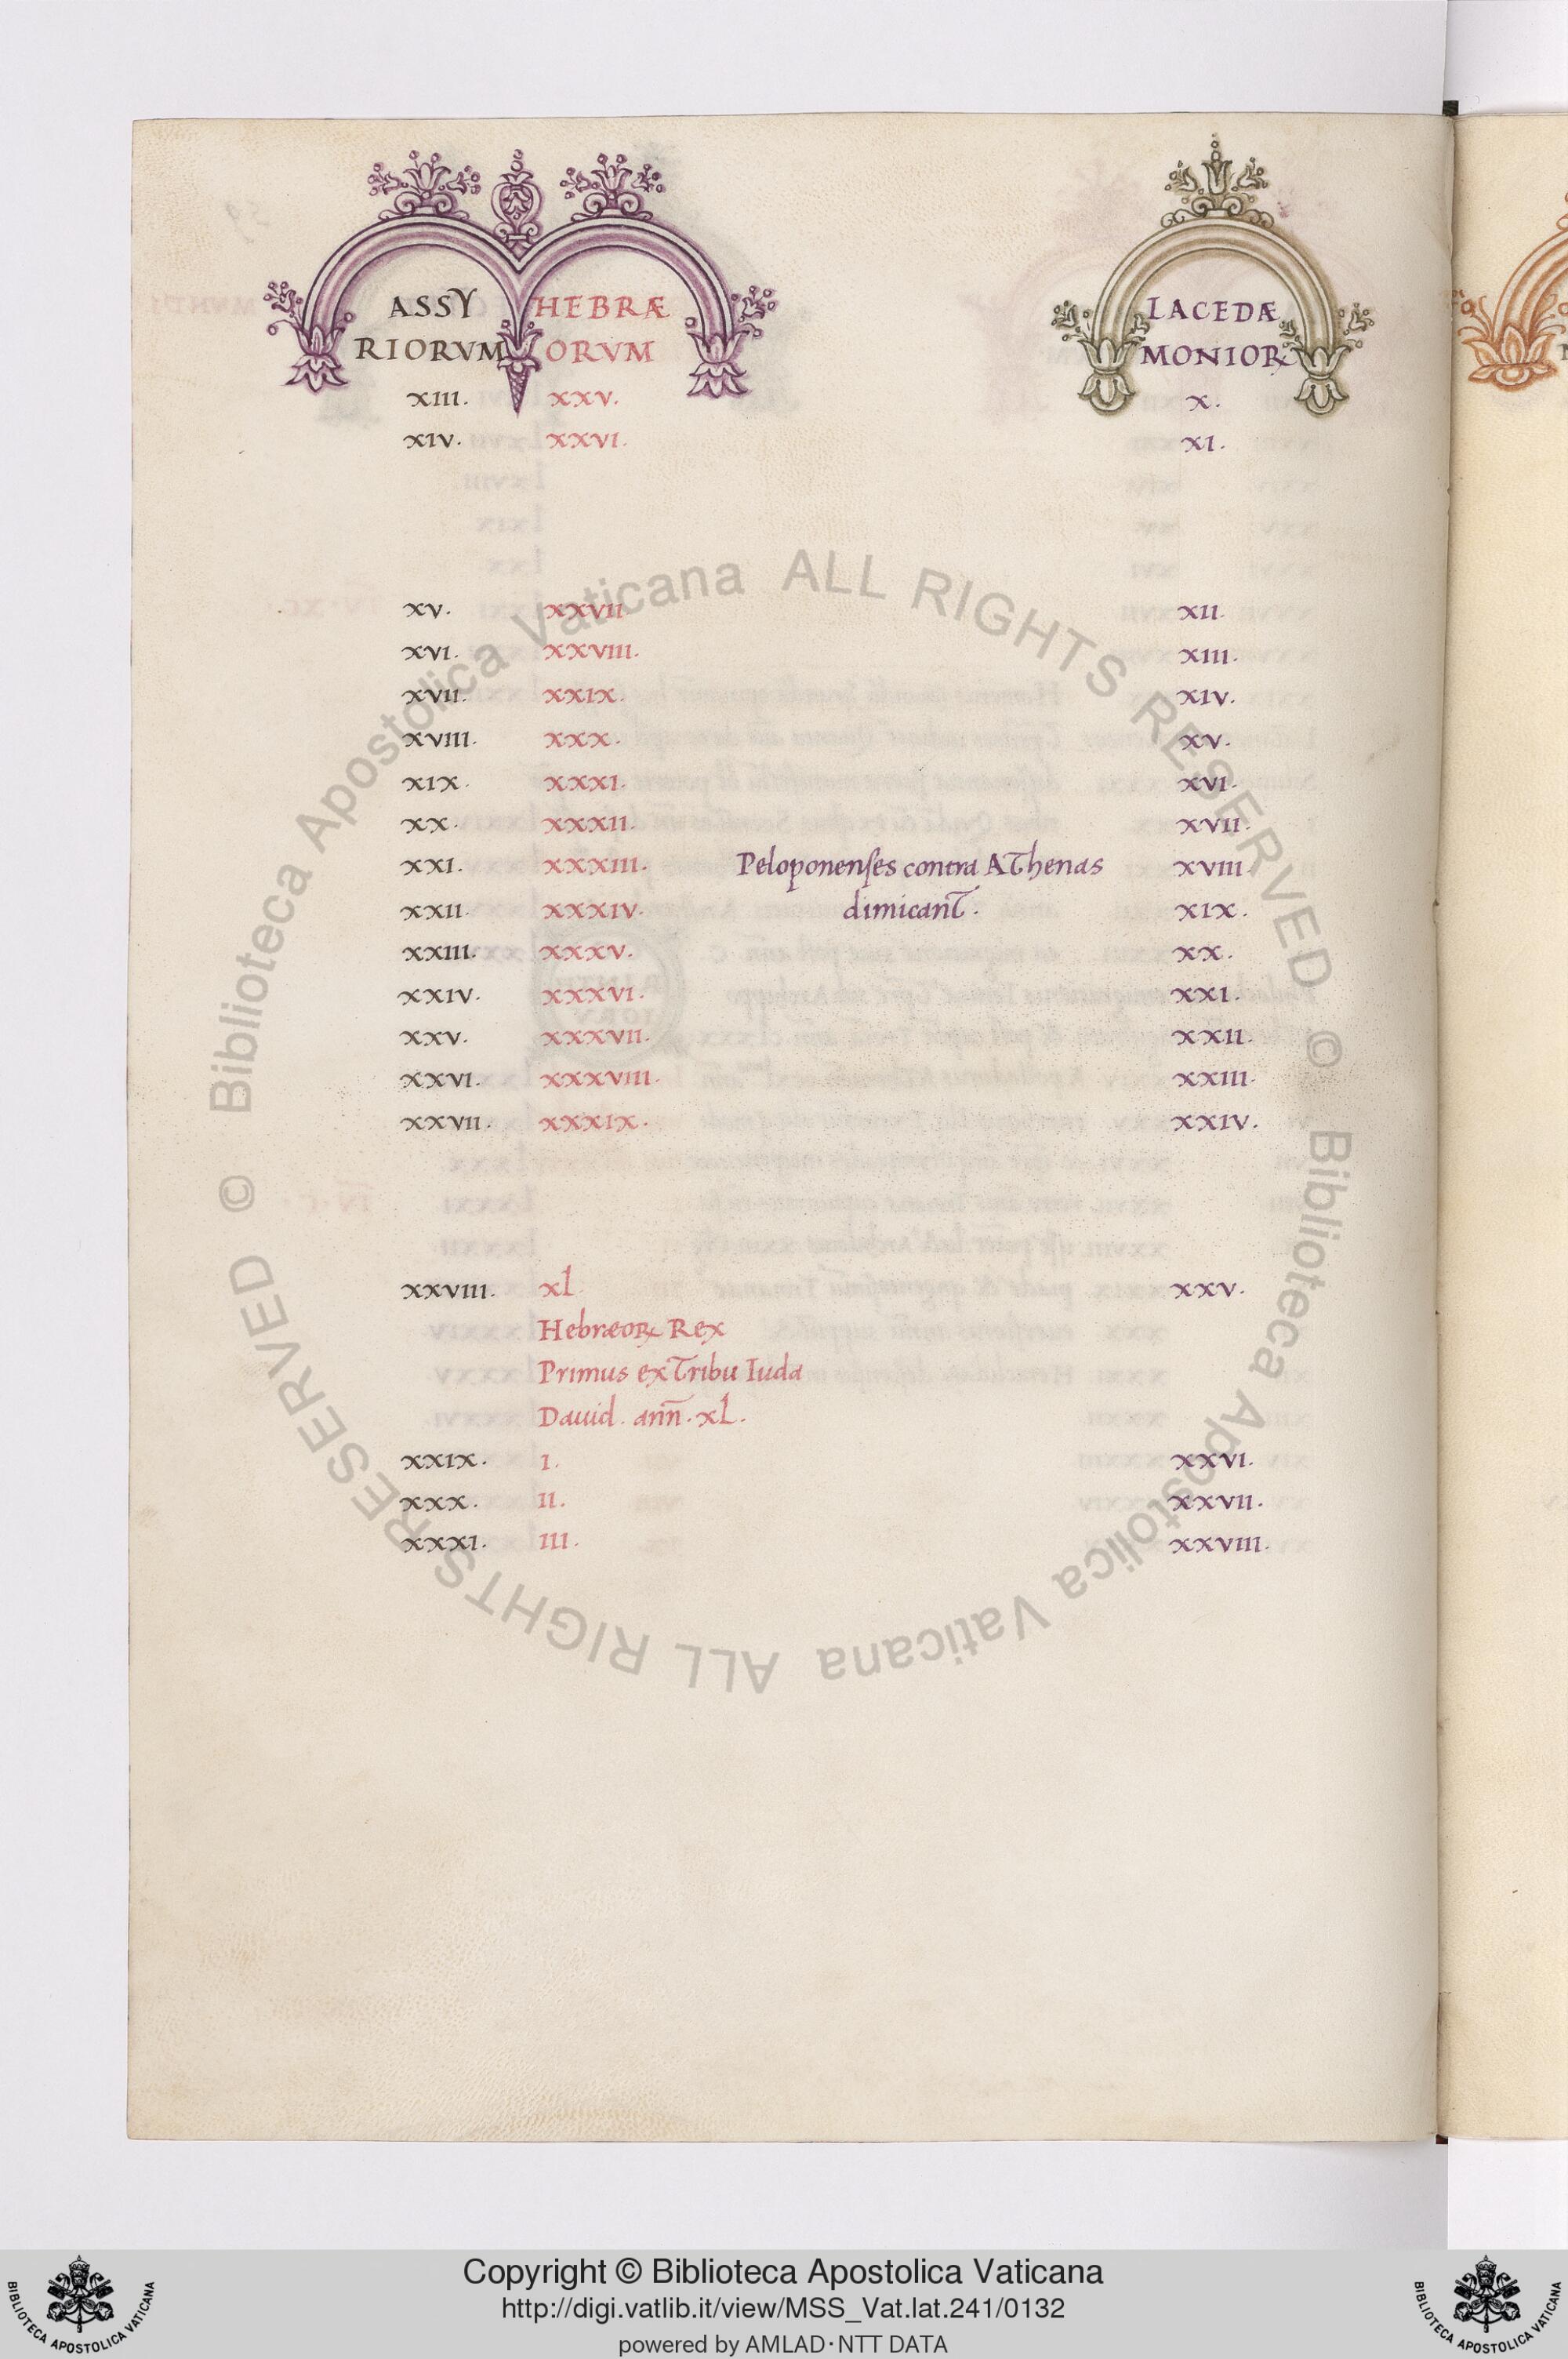 ASSY HEBRÆ LACEDÆ
RIORVM ORVM MONIOꝜ
XIII. XXV. X.
XIV. XXVI. XI.
XV. XXVII XII.
XVI. XXVIII. XIII.
XVII. XXIX. XIV.
XVIII. XXX. XV.
XIX. XXXI. XVI.
XX. XXXII. XVII.
XXI. XXXIII. Peloponenſes contra Athenas XVIII.
XXII. XXXIV. dimicant. XIX.
XXIII. XXXV. XX.
XXIV. XXXVI. XXI.
XXV. XXXVII. XXII.
XXVI. XXXVIII. XXIII.
XXVII. XXXIX. XXIV.
XXVIII. xl XXV.
HebræoꝜ Rex
Primus ex Tribu Iuda
Dauid. ann̄. xl.
XXIX. I. XXVI.
XXX. II. XXVII.
XXXI. III. XXVIII.
© Biblioteca Apostolica Vaticana ALL RIGHTS RESERVED
© Biblioteca Apostolica Vaticana ALL RIGHTS RESERVED
Copyright © Biblioteca Apostolica Vaticana
http://digi.vatlib.it/view/MSS_Vat.lat.241/0132
powered by AMLAD·NTT DATA
BIBLIOTECA APOSTOLICA VATICANA
BIBLIOTECA APOSTOLICA VATICANA